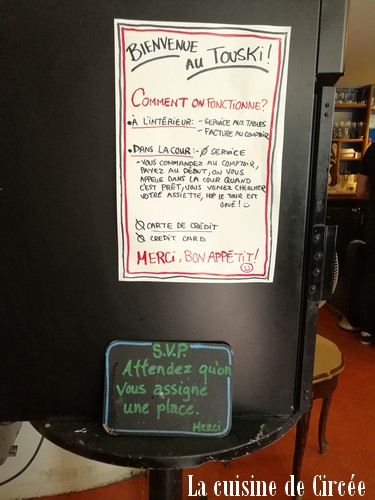 BIENVENUE
AU TOUSKI!
COMMENT ON FONCTIONNE?
• À L'INTÉRIEUR: - SERVICE AUX TABLES
- FACTURE AU COMPTOIR
• DANS LA COUR: - Ø SERVICE
- VOUS COMMANDEZ AU COMPTOIR,
PAYEZ AU DÉBUT, ON VOUS
APPELLE DANS LA COUR QUAND
C'EST PRÊT, VOUS VENEZ CHERCHER
VOTRE ASSIETTE, HOP LE TOUR EST
JOUÉ! :)
Ø CARTE DE CRÉDIT
Ø CREDIT CARD
MERCI, BON APPÉTIT!
S.V.P.
Attendez qu'on
vous assigne
une place.
Merci
La cuisine de Circée